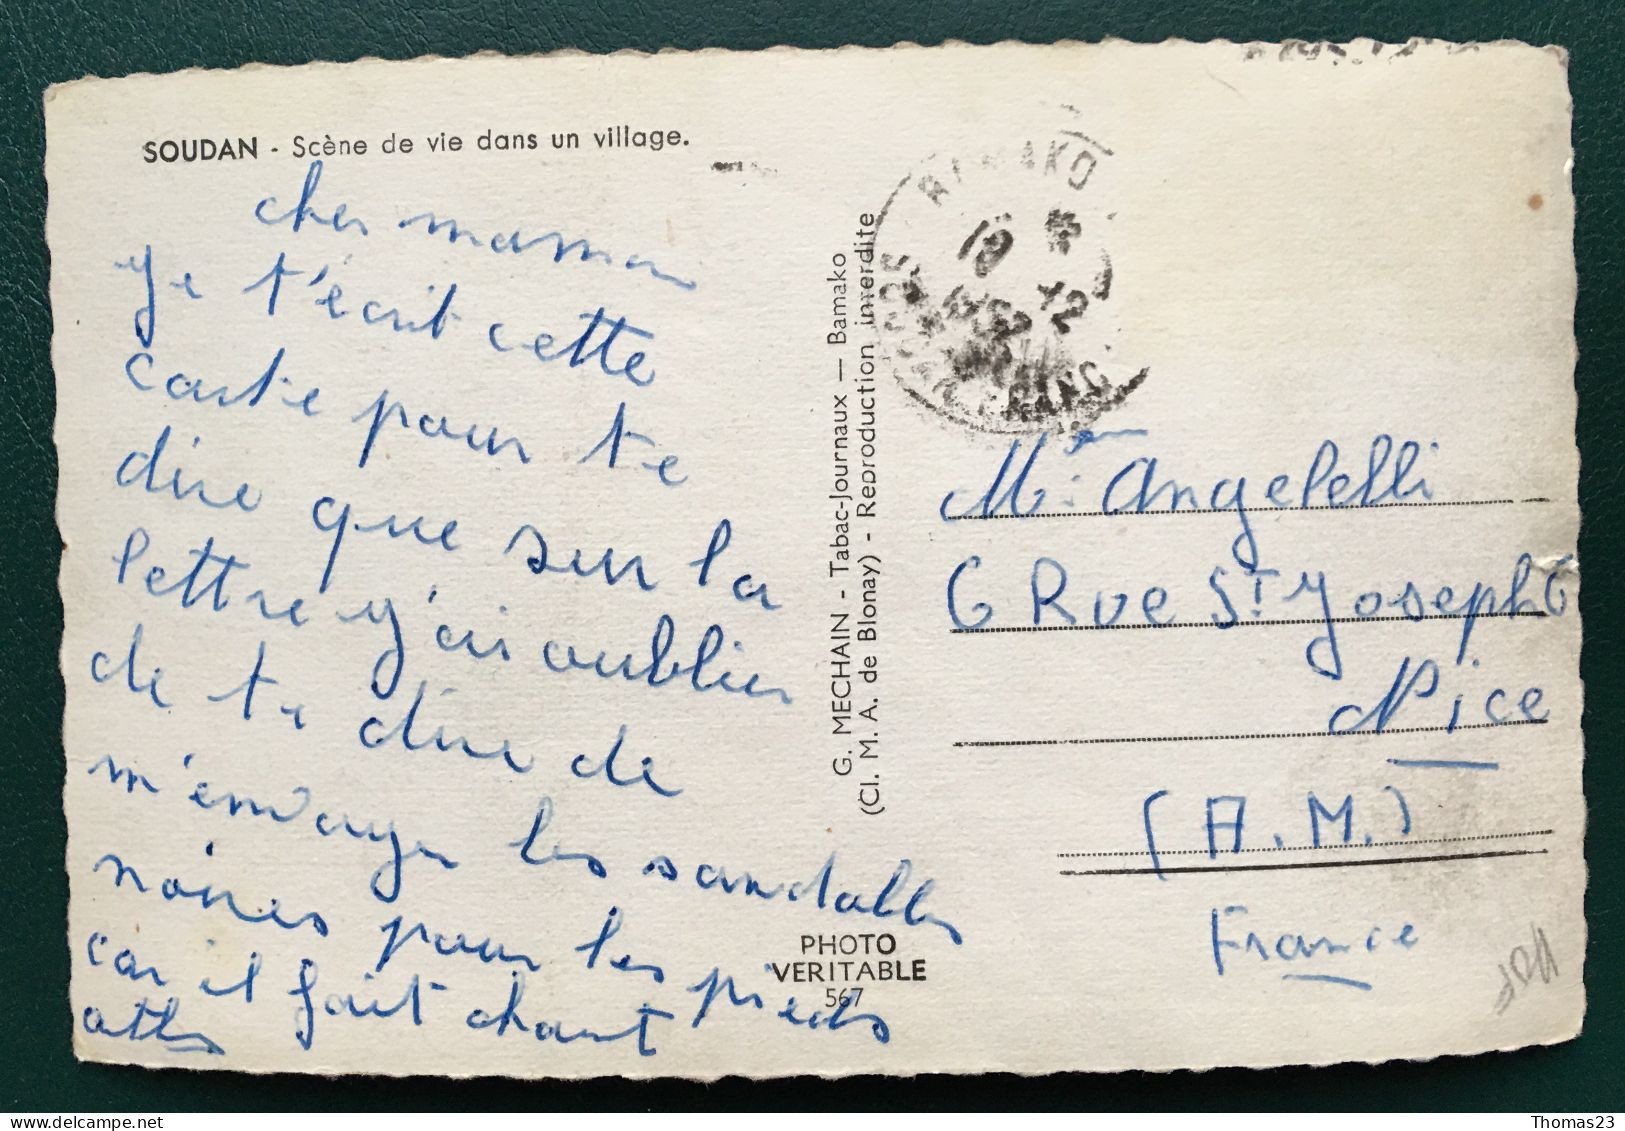 SOUDAN - Scène de vie dans un village.
cher maman
je t'écrit cette
carte pour te
dire que sur la
lettre j'ai oublier
de te dire de
m'envoyer les sandalles
noires pour les pieds
car il fait chaut
G. MECHAIN - Tabac-Journaux — Bamako
(Cl. M. A. de Blonay) - Reproduction interdite
PHOTO
VERITABLE
567
BAMAKO
19
12
Angelelli
6 Rue St Joseph 6
Nice
(A.M.)
France
Thomas23